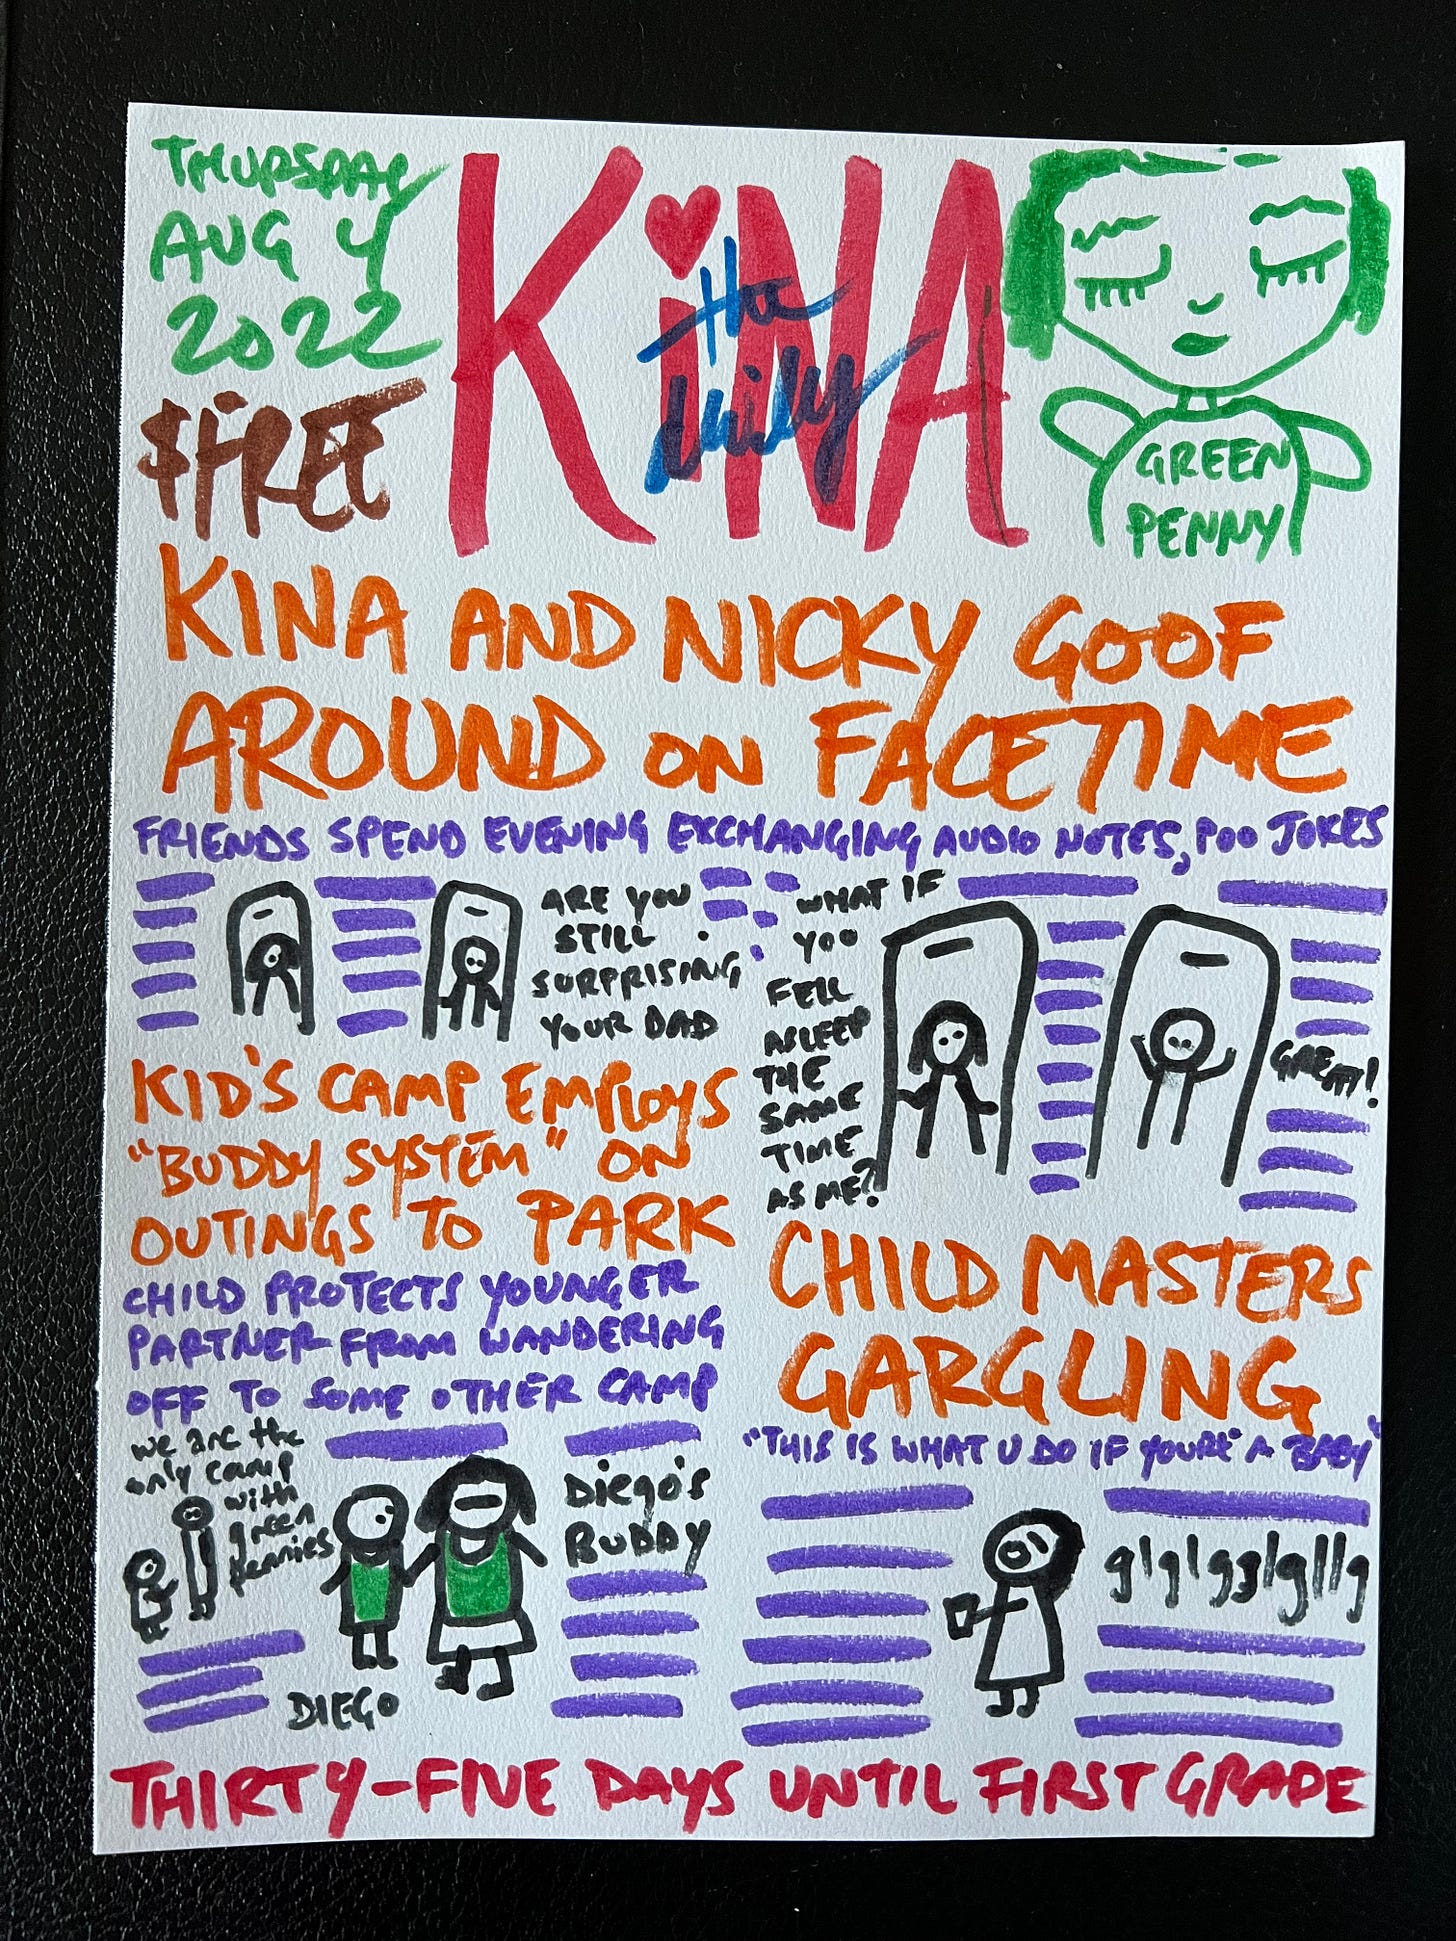 THURSDAY
AUG 4
2022
$FREE
KiNA
the daily
GREEN
PENNY
KINA AND NICKY GOOF
AROUND ON FACETIME
FRIENDS SPEND EVENING EXCHANGING AUDIO NOTES, POO JOKES
ARE YOU
STILL
SURPRISING
YOUR DAD
WHAT IF
YOU
FELL
ASLEEP
THE
SAME
TIME
AS ME?
GREAT!
KID'S CAMP EMPLOYS
"BUDDY SYSTEM" ON
OUTINGS TO PARK
CHILD PROTECTS YOUNGER
PARTNER FROM WANDERING
OFF TO SOME OTHER CAMP
we are the
only camp
with
green
pennies
DIEGO
Diego's
BUDDY
CHILD MASTERS
GARGLING
"THIS IS WHAT U DO IF YOU'RE A BABY"
THIRTY-FIVE DAYS UNTIL FIRST GRADE